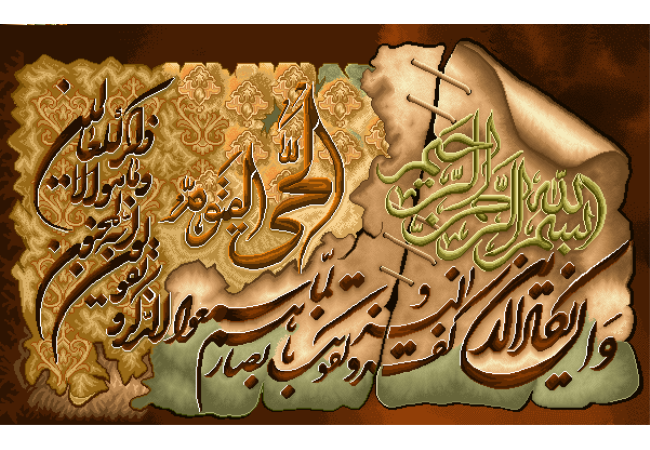 بسم الله الرحمن الرحيم
الحي القيوم
وإن يكاد الذين كفروا ليزلقونك بأبصارهم لما سمعوا الذكر و
يقولون إنه لمجنون
وما هو إلا
ذكر للعالمين